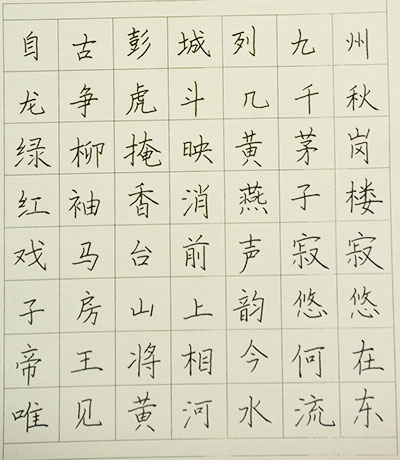 自古彭城列九州
龙争虎斗几千秋
绿柳掩映黄茅岗
红袖香消燕子楼
戏马台前声寂寂
子房山上韵悠悠
帝王将相今何在
唯见黄河水流东